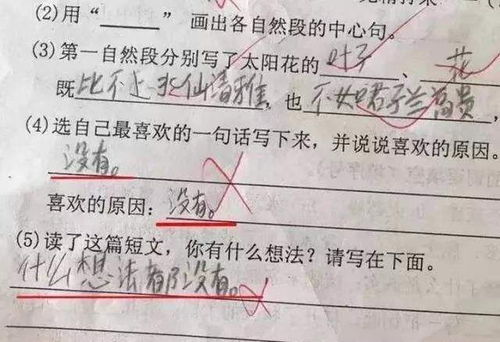 (2)用“______”画出各自然段的中心句。
(3)第一自然段分别写了太阳花的 叶子 、 花
既 比不上水仙清雅 ，也 不如君子兰高贵 ，
(4)选自己最喜欢的一句话写下来，并说说喜欢的原因。
没有。
喜欢的原因：没有。
(5)读了这篇短文，你有什么想法？请写在下面。
什么想法都没有。